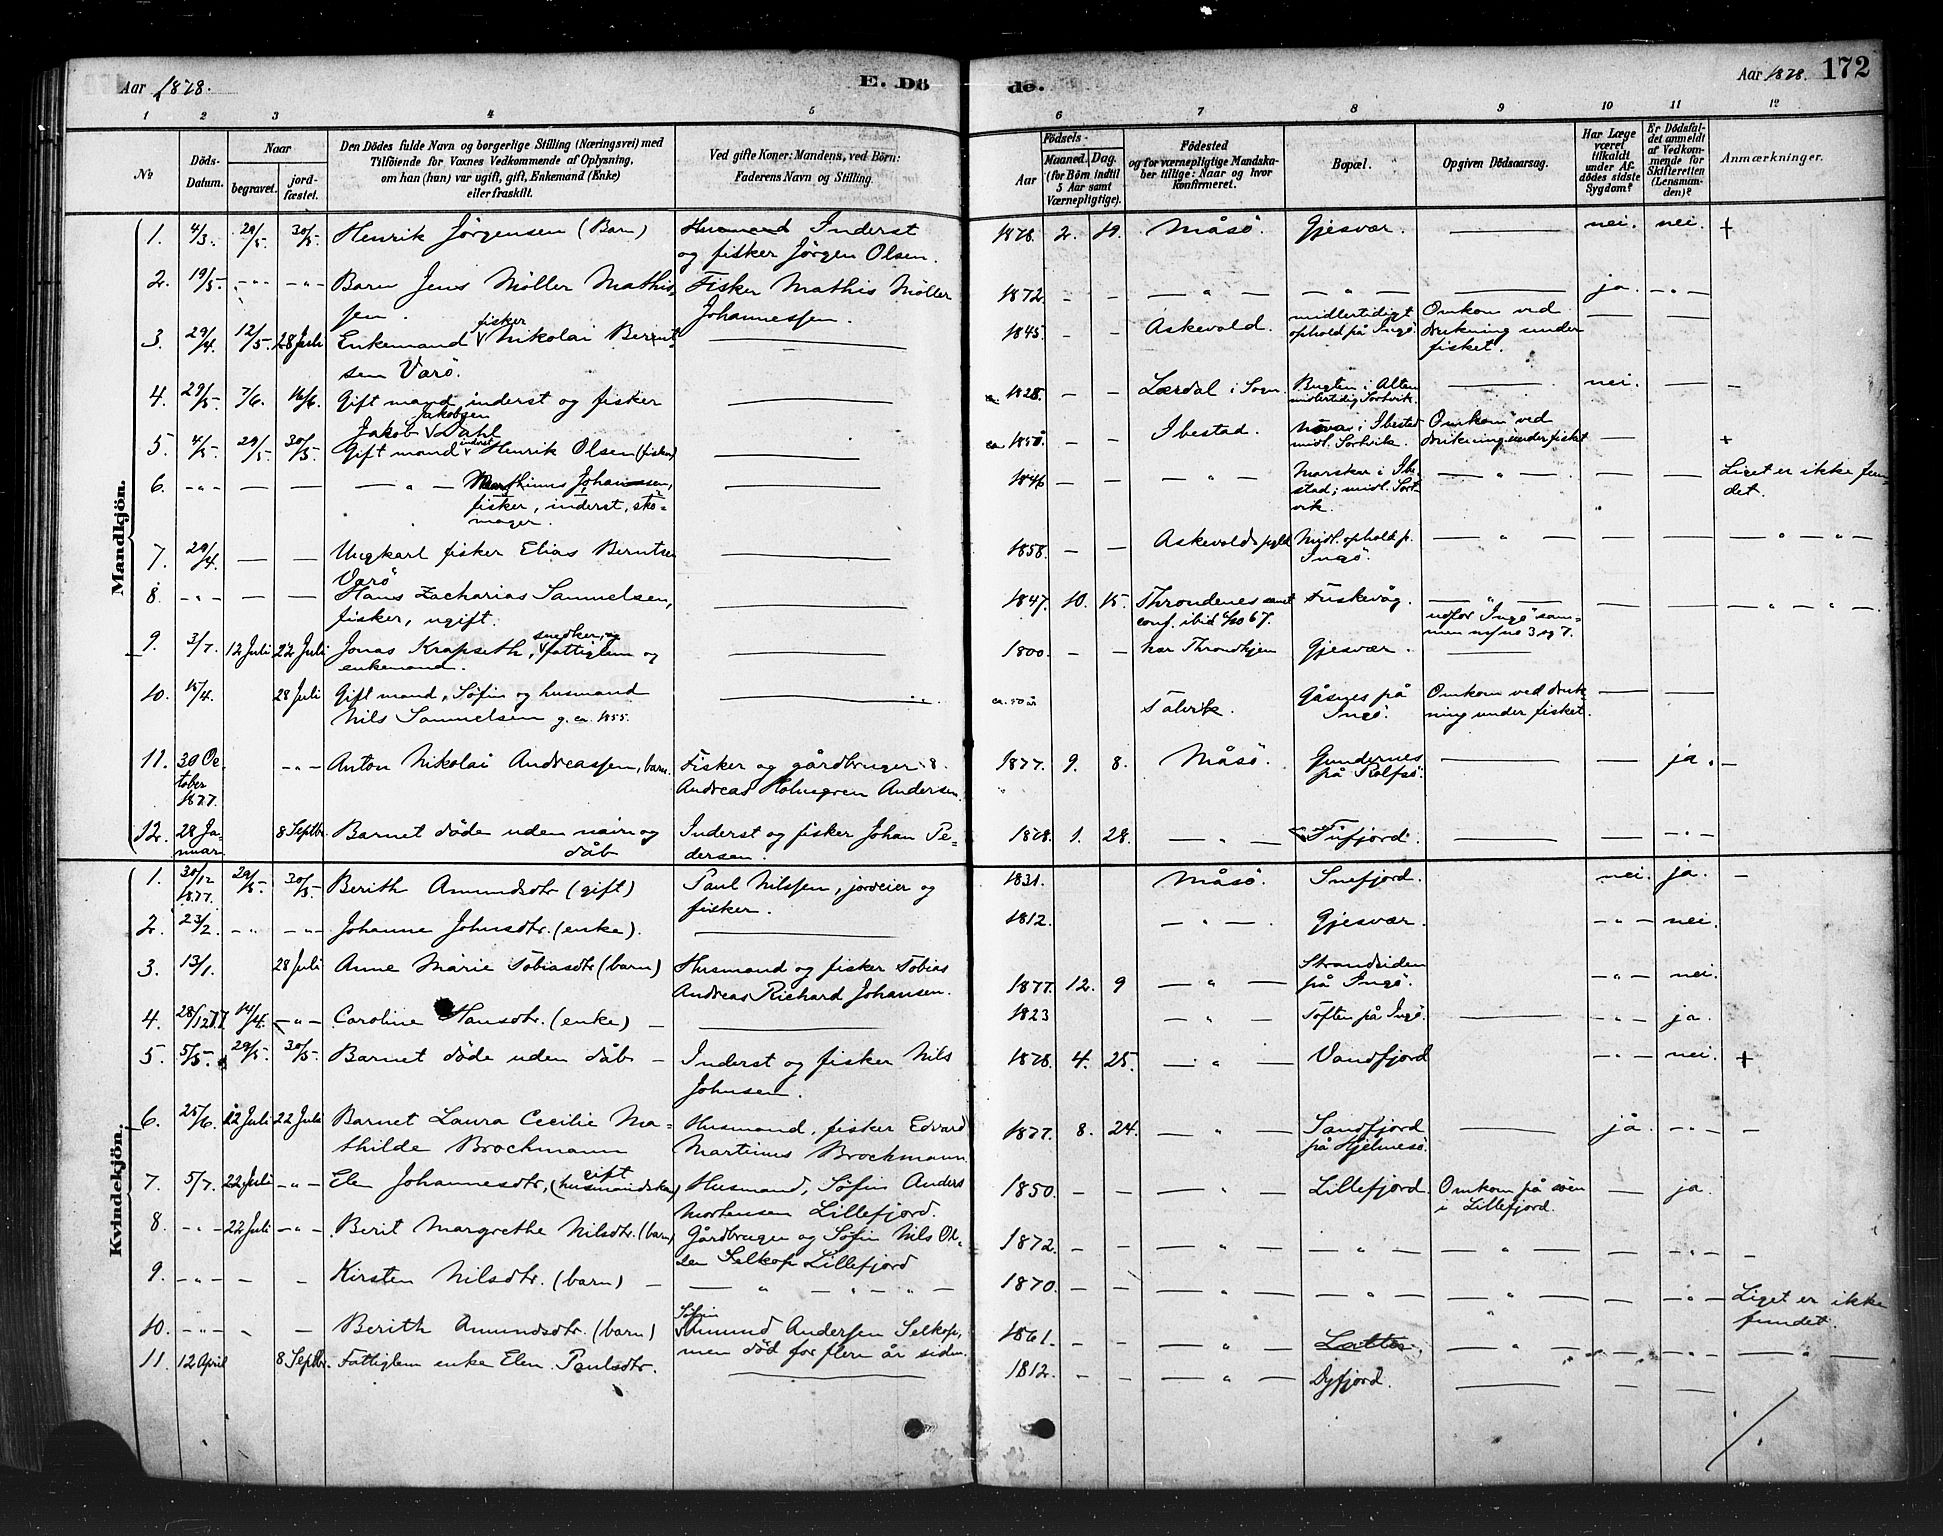 Aar 1878.
E. Dö
de.
Aar 1878.
172
1 2 3 4 5 6 7 8 9 10 11 12
No
Döds-Datum.
Naar
begravet.
jord-fæstet.
Den Dödes fulde Navn og borgerlige Stilling (Næringsvei) med
Tilföiende for Voxnes Vedkommende af Oplysning,
om han (hun) var ugift, gift, Enkemand (Enke)
eller fraskilt.
Ved gifte Koner: Mandens, ved Börn:
Faderens Navn og Stilling.
Födsels-
Aar
Maaned. Dag.
(for Börn indtil
5 Aar samt
Værnepligtige).
Födested
og for værnepligtige Mandska-
ber tillige: Naar og hvor
konfirmeret.
Bopæl.
Opgiven Dödsaarsag.
Har Læge
været
tilkaldt
under Af-
dödes sidste
Sygdom?
Er Dödsfal-
det anmeldt
af Vedkom-
mende for
Skifteretten
(Lensman-
den)?
Anmærkninger.
Mandkjön.
1. 4/3. 29/5. 30/5. Henrik Jörgensen (Barn) Husmand Inderst 1878. 2. 19. Måsö. Gjesvær. — nei. nei. +
og fisker Jörgen Olsen.
2. 19/5. -"- -"- Barn Jens Möller Mathis- Fisker Mathis Möller 1872. - - — " — — " — — ja. — " —
sen. Johannessen.
3. 29/4. 12/5. 28 Juli Enkemand fisker Nikolai Bernt- — 1845. - - Askevold. midlertidigt Omkom ved — —
sen Varö. ophold på Ingö. drukning under
fisket.
4. 29/5. 7/6. 16/6. Gift mand inderst og fisker — ca. 1828. — — Lærdal i Sogn. Bugten i Alten — nei. — —
Jakob Jakobsen Dahl midlertidig Sortvik.
5. 4/5. 29/5. 30/5. Gift mand inderst Henrik Olsen (fisker) — ca. 1850. - - Ibestad. i Ibestad Omkom ved — +
midl. Sortvik. drukning under fisket
6. -"- — — — " — Marthinus Johansen, — 1846 — — " — i Ibe- — " — — — Liget er ikke fun-
fisker, inderst, sko- stad; midl. Sort- det.
mager. vik.
7. 29/4. — — Ungkarl fisker Elias Berntsen — 1858. — — Askevolds pgld Midl. ophold p. — " — — — " — " —
Varö Ingö.
8. -"- — — Hans Zacharias Samuelsen, — 1847. 10. 15. Throndenes samt Fuskevåg. — " — — — — " — " — " —
fisker, ugift. conf. ibid 67. udfor Ingö sam-
men m/ no 3 og 7.
9. 3/7. 12 Juli 22 Juli Jonas Krapseth, snedker, og fattiglem og — 1800. — — Throndhjem Gjesvær. —
enkemand.
10. 15/4. 28 Juli Gift mand, Söfin og husmand — ca. 50 år Talvik. Gåsnes på Omkom ved druk- — —
Nils Samuelsen g. ca. 1855. Ingö. ning under fisket.
11. 30 Oc- -"- Anton Nikolai Andreassen, barn. Fisker og gårdbruger 1877. 9. 8. Måsö. Gundernes — — ja. —
tober Andreas Holmgren Andersen. på Rolfsö.
1877.
12. 28 Ja- 8 Septbr. Barnet döde uden navn og Inderst og fisker Johan Pe- 1878. 1. 28. — " — Tufjord. — — — " —
nuar dåb dersen.
Kvindekjön.
1. 30/12 29/5. 30/5. Berith Amundsdtr. (gift) Paul Nilssen, jordeier og 1831. Måsö. Snefjord. nei. ja. —
1877. fisker.
2. 23/2. -"- -"- Johanne Johnsdtr. (enke). — 1812. — " — Gjesvær. -"- nei.
3. 13/1. 28 Juli Anne Marie Tobiasdtr (barn) Husmand og fisker Tobias 1877. 12. 9 — " — Strandsiden -"- nei.
Andreas Richard Johansen. på Ingö.
4. 28/12 77. 14/4. -"- Caroline Hansdtr. (enke) — — 1823 — " — Toften på Ingö. -"- ja.
5. 5/5. 29/5. 30/5. Barnet döde uden dåb — Inderst og fisker Nils 1878. 4. 25. — " — Vandfjord -"- nei. +
Johnsen.
6. 25/6. 12 Juli 22 Juli Barnet Laura Cecilie Ma- Husmand, fisker Edvard 1877. 8. 24. — " — Sandfjord — ja. -"- —
thilde Brochmann Martinus Brochmann. på Hjelmesö.
7. 5/7. 22 Juli -"- Elen Johannesdtr, gift (husmandskone) Husmand, Söfin Anders 1850. - - — " — Lillefjord. Omkom på söen — ja.
Mortensen Lillefjord. i Lillefjord.
8. -"- 22 Juli -"- Berit Margrethe Nilsdtr. (barn) Gårdbruger og Söfin Nils Ol- 1872. - - — " — — " — — " — — -"- —
sen Selkop Lillefjord
9. -"- — - Kirsten Nilsdtr. (barn) — — " — " — " — 1870. - - — " — — " — — " — — -"- Liget er ikke
fundet.
10. -"- - - Berith Amundsdtr. (barn) Söfin Amund Andersen Selkop, 1861. - - — " — Latter — " — — " —
men död for flere år siden.
11. 12 April 8 Septbr. Fattiglem enke Elen Paulsdtr. — 1812. - - — " — Dyfjord. — — —